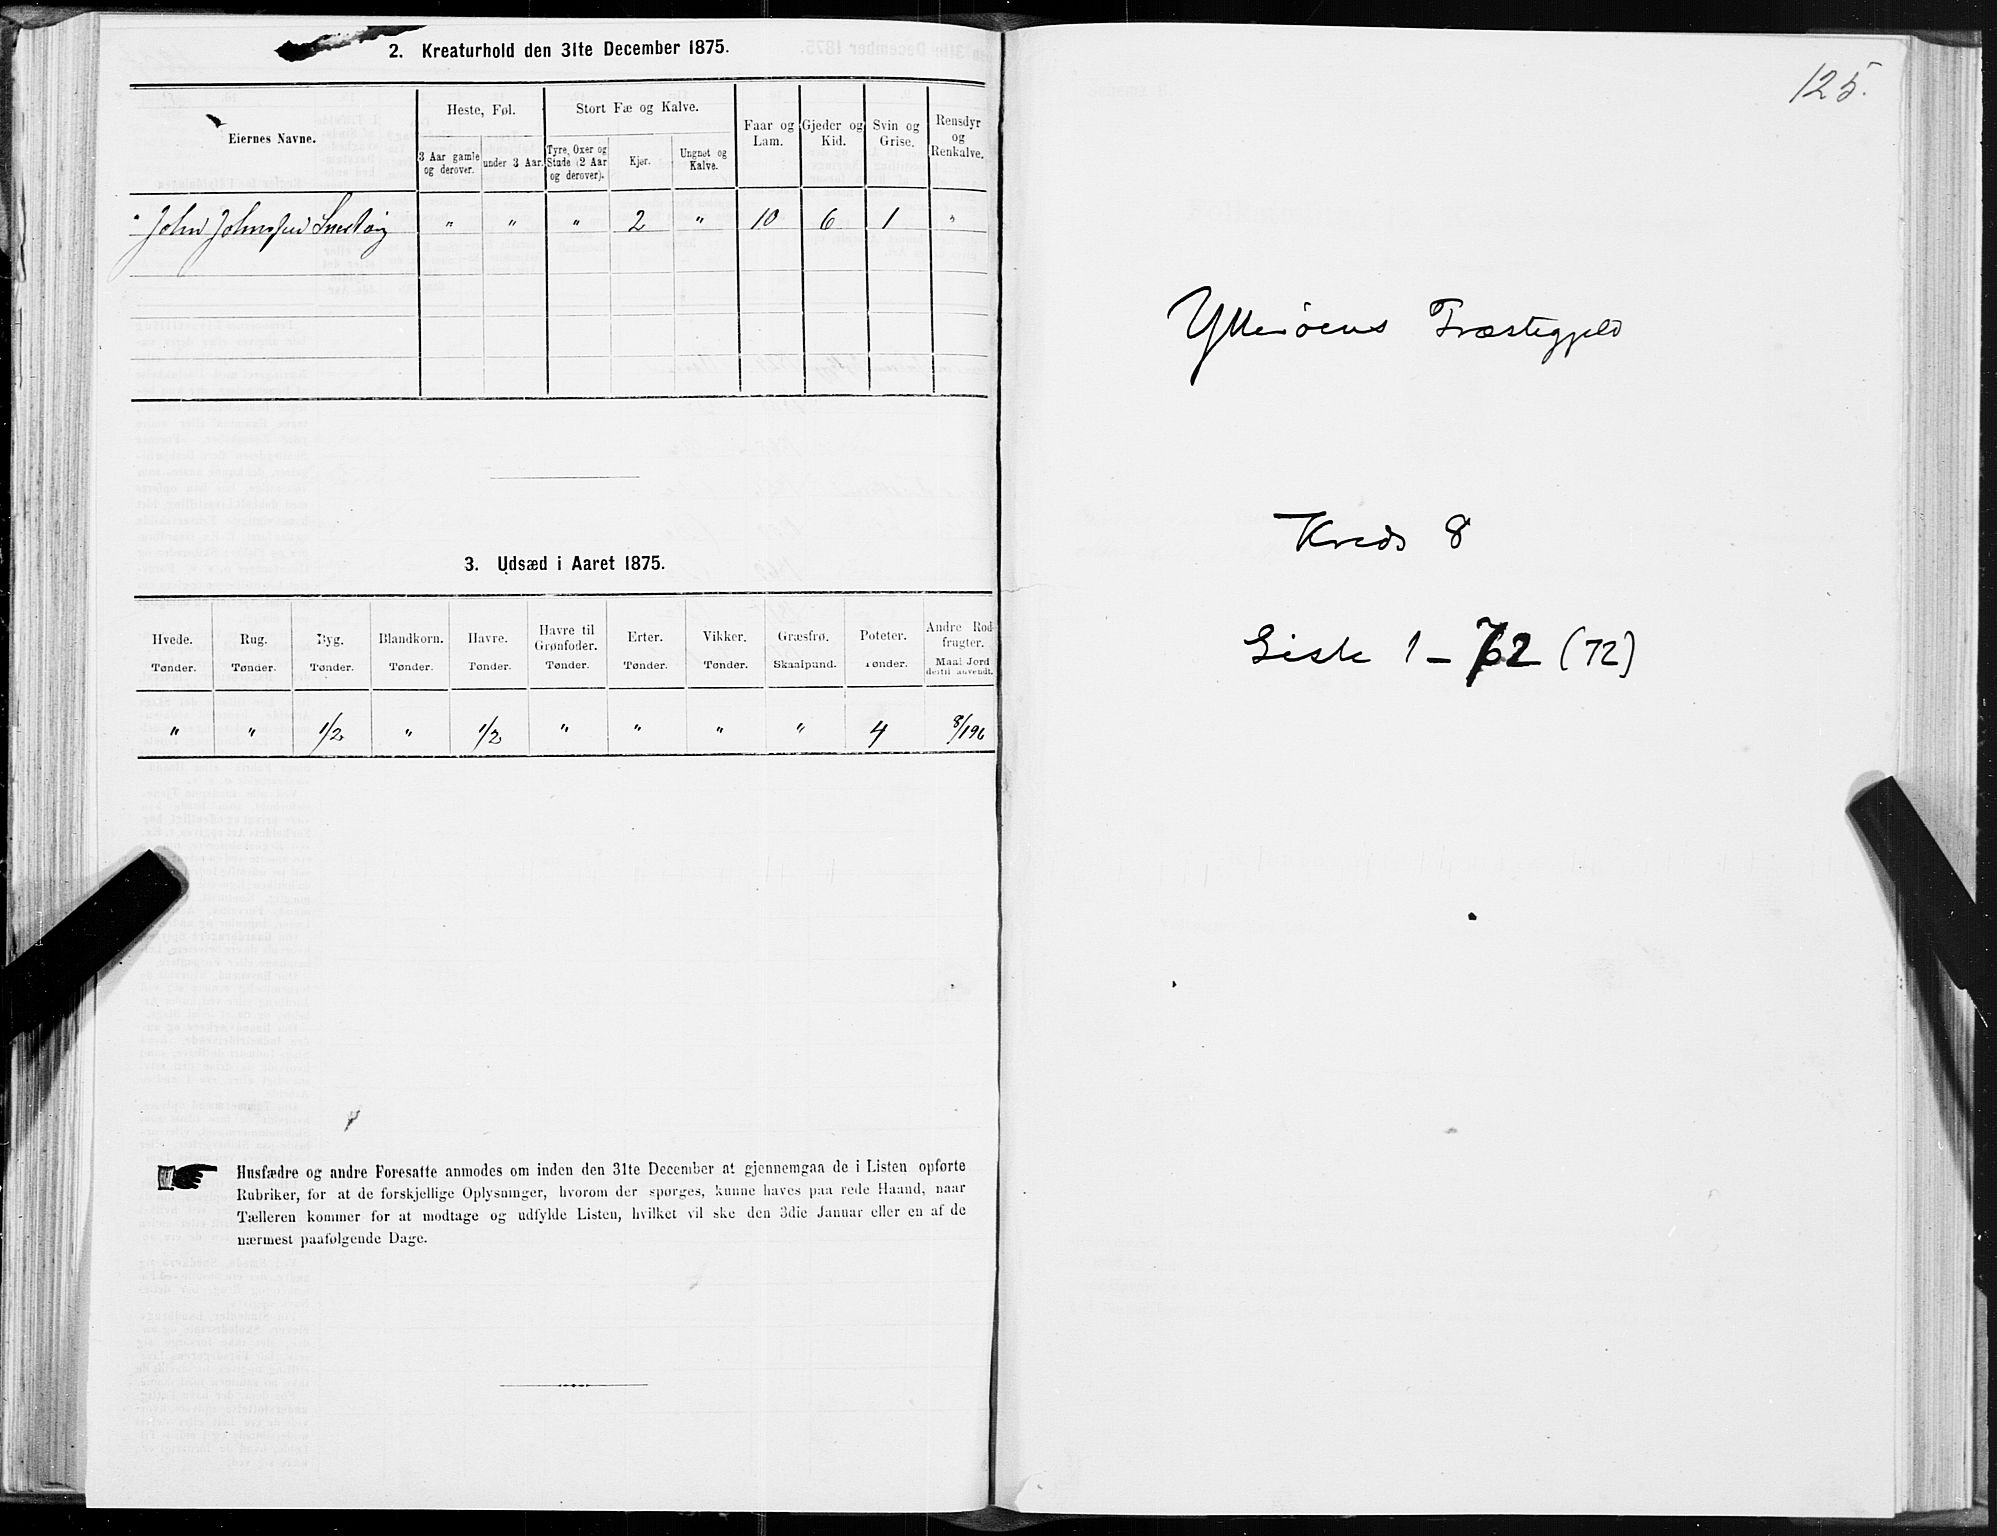 2. Kreaturhold den 31te December 1875.
Eiernes Navne.
Heste, Føl.
Stort Fæ og Kalve.
Faar og Lam.
Gjeder og Kid.
Svin og Grise.
Rensdyr og Renkalve.
3 Aar gamle og derover.
under 3 Aar.
Tyre, Oxer og Stude (2 Aar og derover).
Kjør.
Ungnøt og Kalve.
John Johnsen " " " 2 " 10 6 1 "
3. Udsæd i Aaret 1875.
Hvede. Rug. Byg. Blandkorn. Havre. Havre til Grønfoder. Erter. Vikker. Græsfrø. Poteter. Andre Rodfrugter.
Tønder. Tønder. Tønder. Tønder. Tønder. Tønder. Tønder. Tønder. Skaalpund. Tønder. Maal Jord dertil anvendt.
" " 1/2 " 1/2 " " " " 4 8/196
Husfædre og andre Foresatte anmodes om inden den 31te December at gjennemgaa de i Listen opførte
Rubriker, for at de forskjellige Oplysninger, hvorom der spørges, kunne haves paa rede Haand, naar
Tælleren kommer for at modtage og udfylde Listen, hvilket vil ske den 3die Januar eller en af de
nærmest paafølgende Dage.
125.
Ytterøens Præstegjeld
Kreds 8
Liste 1 - 62 (72)